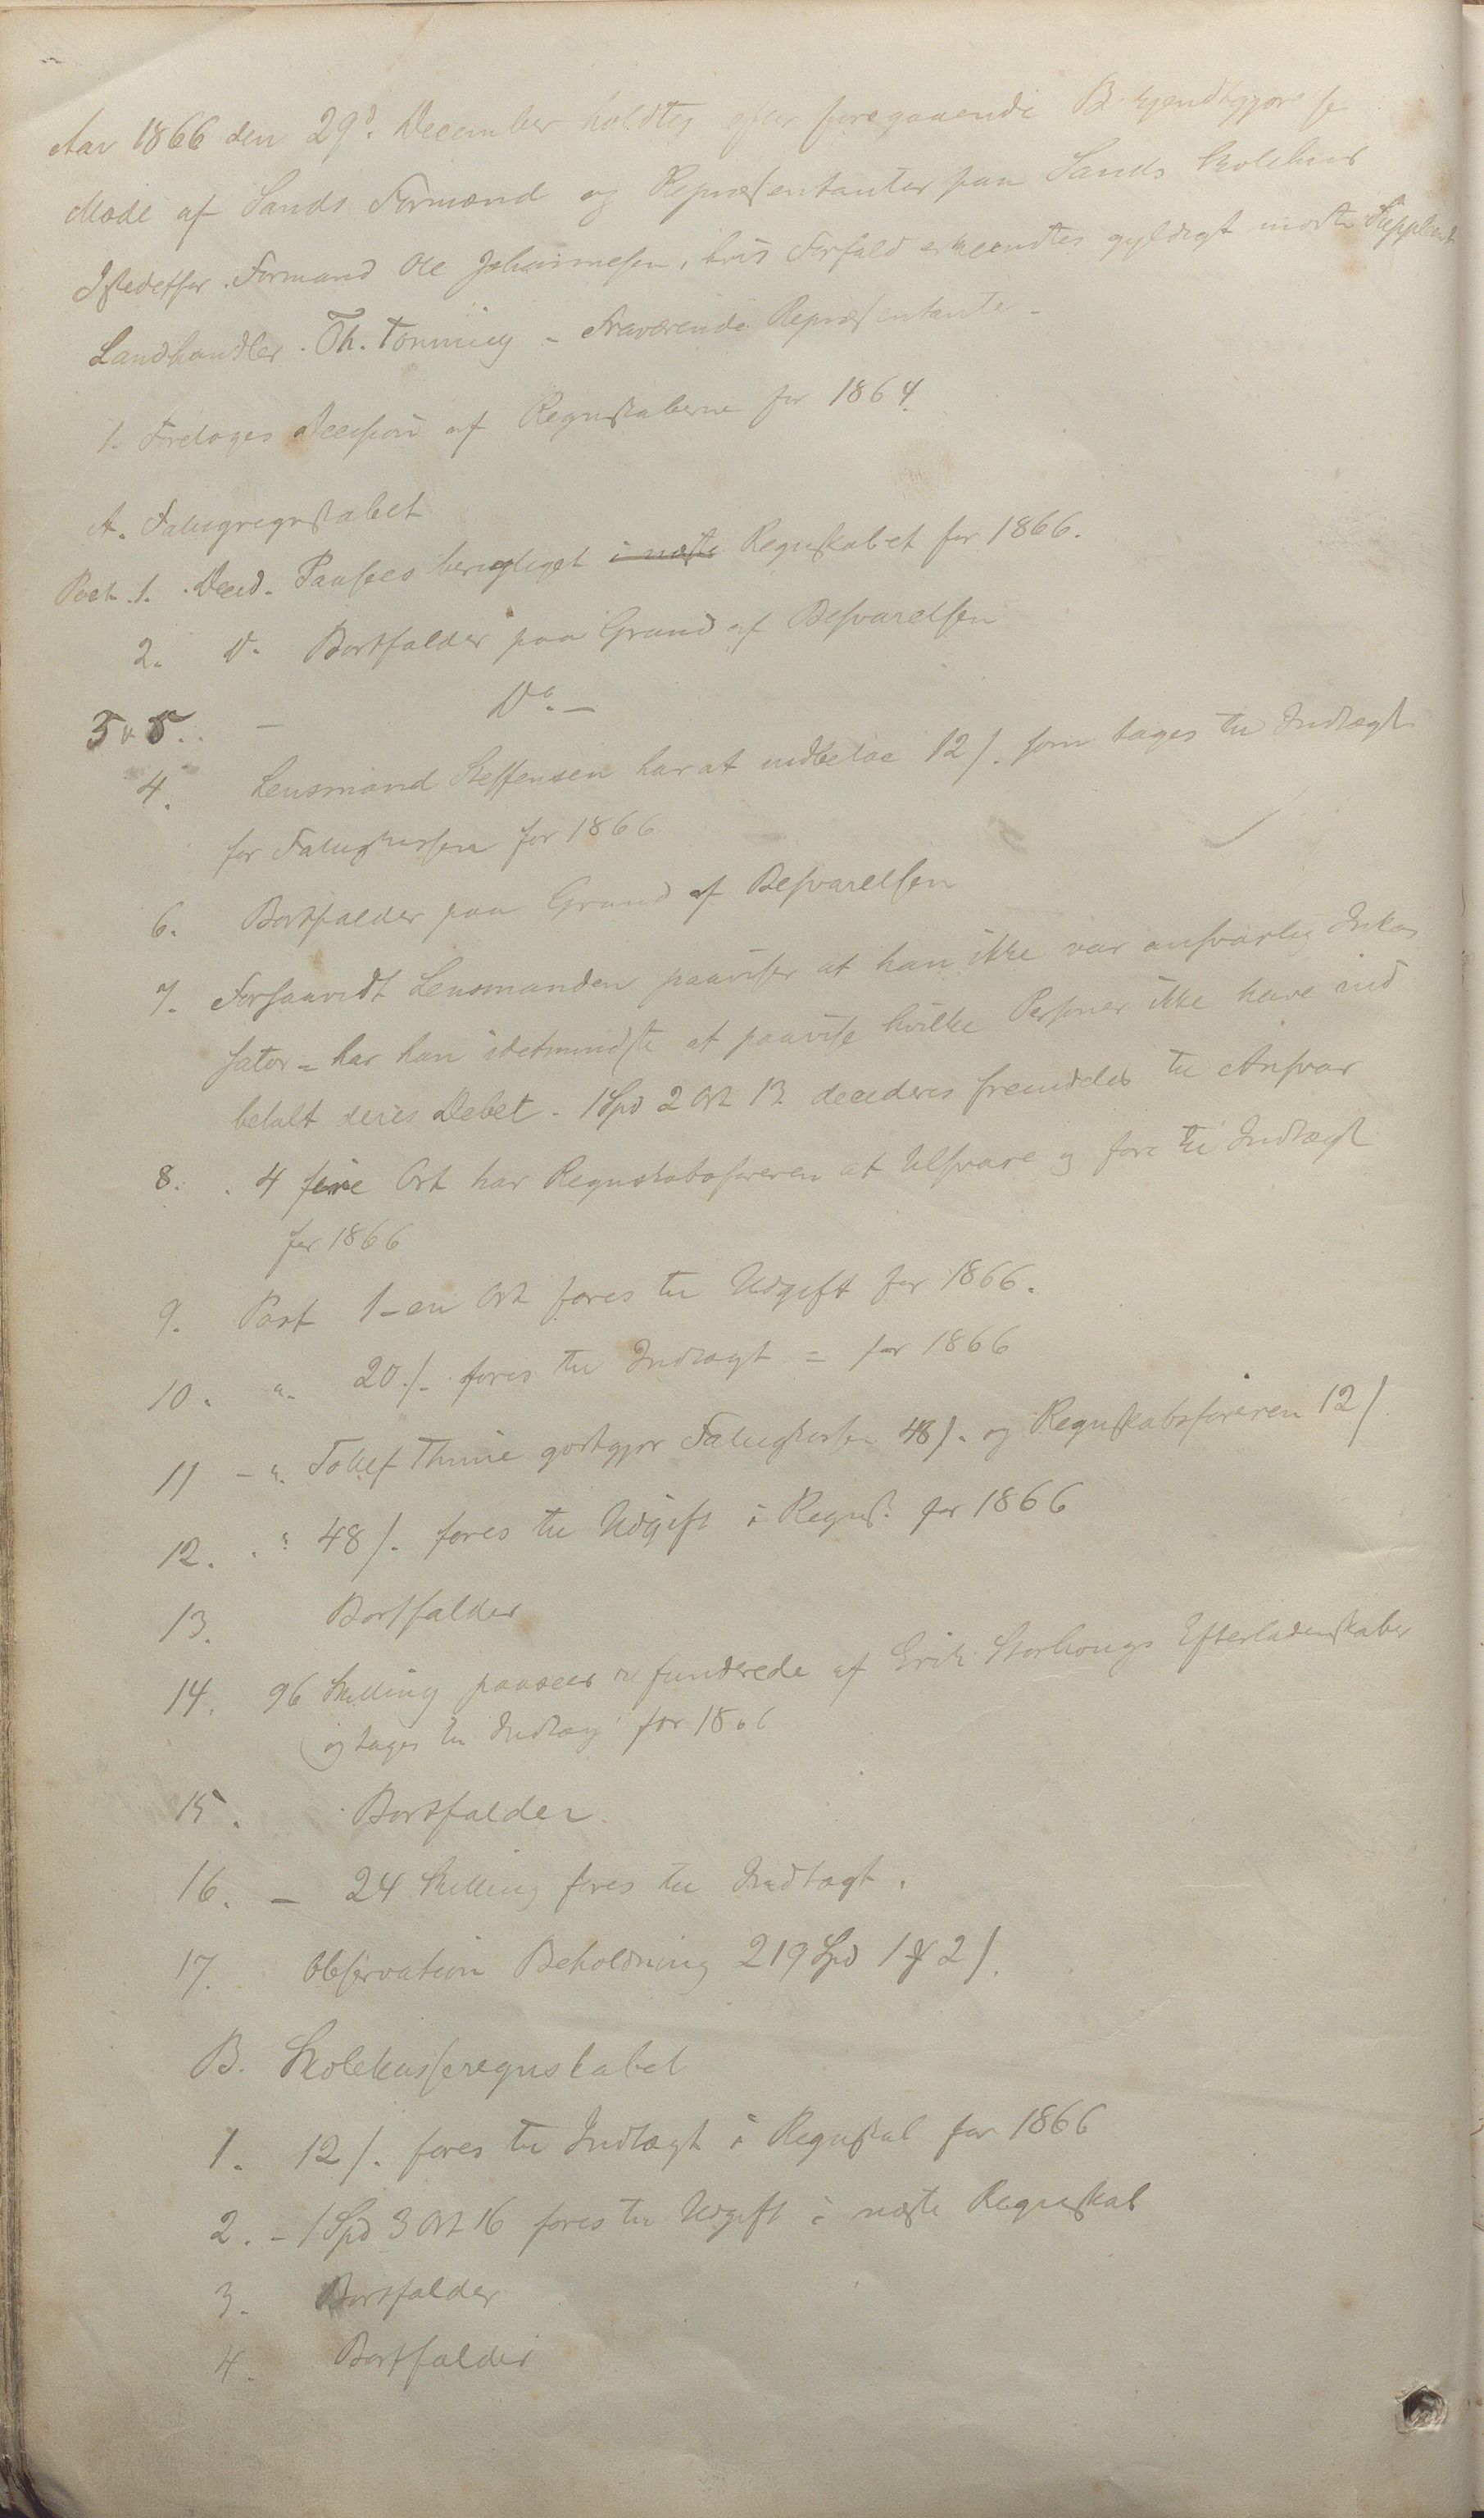 Aar 1866 den 29d. December holdtes efter foregaaende Bekjendtgjørelse
Møde af Sands Formænd og Repræsentanter paa Sands Skolehus
Istedetfor Formand Ole Johannesen, hvis Forfald erkjendtes gyldigt mødte Suppleant
Landhandler Th. Tønning - Fraværende Repræsentante -
1. Foretoges Decision af Regnskaberne for 1864.
A. Fattigregnskabet
Post 1. Decid. Paasees berigtiget i næste Regnskabet for 1866.
2. D. Bortfalder paa Grund af Besvarelsen
3 & 5.. - Do. -
4. Lensmand Steffensen har at indbetale 12 /. som tages til Indtægt
for Fattigkassen for 1866
6. Bortfalder paa Grund af Besvarelsen
7. Forsaavidt Lensmanden paaviser at han ikke var ansvarlig Inkas
sator = har han idetmindste at paavise hvilke Personer ikke have ind
betalt deres Debet. 1 Spd 2 Ort 13. decideres fremdeles til Ansvar
8. 4 fire Ort har Regnskabsføreren at tilsvare og føre til Indtægt
for 1866
9. Post 1 - en Ort føres til Udgift for 1866.
10. " 20 /. føres til Indtægt = for 1866
11 - ". Tollef Thime godtgjør Fattigkassen 48 /. og Regnskabsføreren 12 /.
12. " 48 /. føres til Udgift i Regnsk. for 1866
13. Bortfalder
14. 96 Skilling paasees refunderede af Erik Storhougs Efterladenskaber
og tages til Indtægt for 1866
15. Bortfalder.
16. - 24 Skilling føres til Indtægt.
17. Observation Beholdning 219 Spd 1 # 2 /.
B. Skolekasseregnskabet
1. 12 /. føres til Indtægt i Regnskab for 1866
2. - 1 Spd 3 Ort 16 føres til Udgift i næste Regnskab
3. Bortfalder
4. Bortfalder